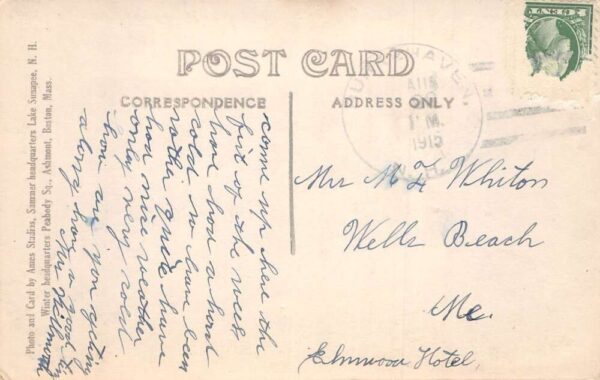 POST CARD
CORRESPONDENCE
ADDRESS ONLY
Photo and Card by Ames Studios, Summer headquarters Lake Sunapee, N. H.
Winter headquarters Peabody Sq., Ashmont, Boston, Mass.
HAVEN
AUG
P M.
1915
N.H.
come up here the
first of the week
have had a hard
cold, so have been
rather quiet have
had nice weather
only very cold
how are you getting
along have a good time
Mrs
Mrs M Whiton
Wells Beach
Me
Elmwood Hotel,